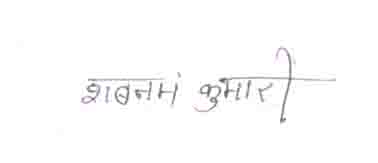 शबनमं कुमारी